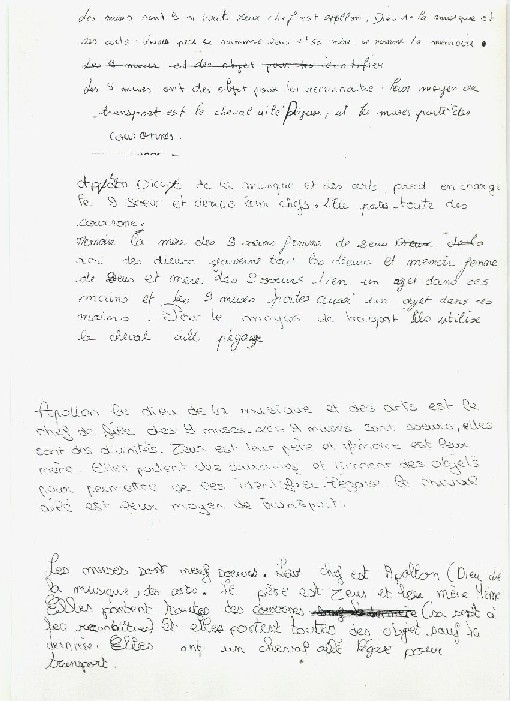 Les muses sont 9 leur chef est apollon, Dieu de la musique et
des arts. leur père se nomme et sa mère se nomme la memoire.
Les 9 muses ont des objet pour les
Les 9 muses ont des objet pour les reconnaitre. leur moyen de
transport est le cheval ailé Pégase, et les muses porte des
couronnes.
Apollon Dieu de la musique et des arts prend en charge
le 9 Soeur et leur chefs. porte toute des
couronne.
la mère des 9 femme de Zeus
des dieux gouverne tout les dieux et memoir femme
de Zeus et mère des 9 soeurs tien un ojet dans ces
mains et les 9 muses portes aussi un ojet dans ces
mains. Pour le moyens de transport Elles utilise
le cheval ailé pégase
Apollon le dieu de la musique et des arts est le
chef de file des 9 muses. 9 muses sont soeurs, elles
sont des divinités. Zeus est leur père et Mémoire est leur
mère. Elles portent des couronnes et tiennent des objets
pour permettre de les identifier. Pégase le cheval
ailé est leur moyen de transport.
Les muses sont neuf soeurs. Leur chef est Apollon (Dieu de
la musique, des arts. Le père est Zeus et leur mère
Elles portent toutes des couronnes (sa sert à
les reconnaitre) Et elles portent toutes des objet sauf la
Elles ont un cheval ailé Pégase pour
transport.